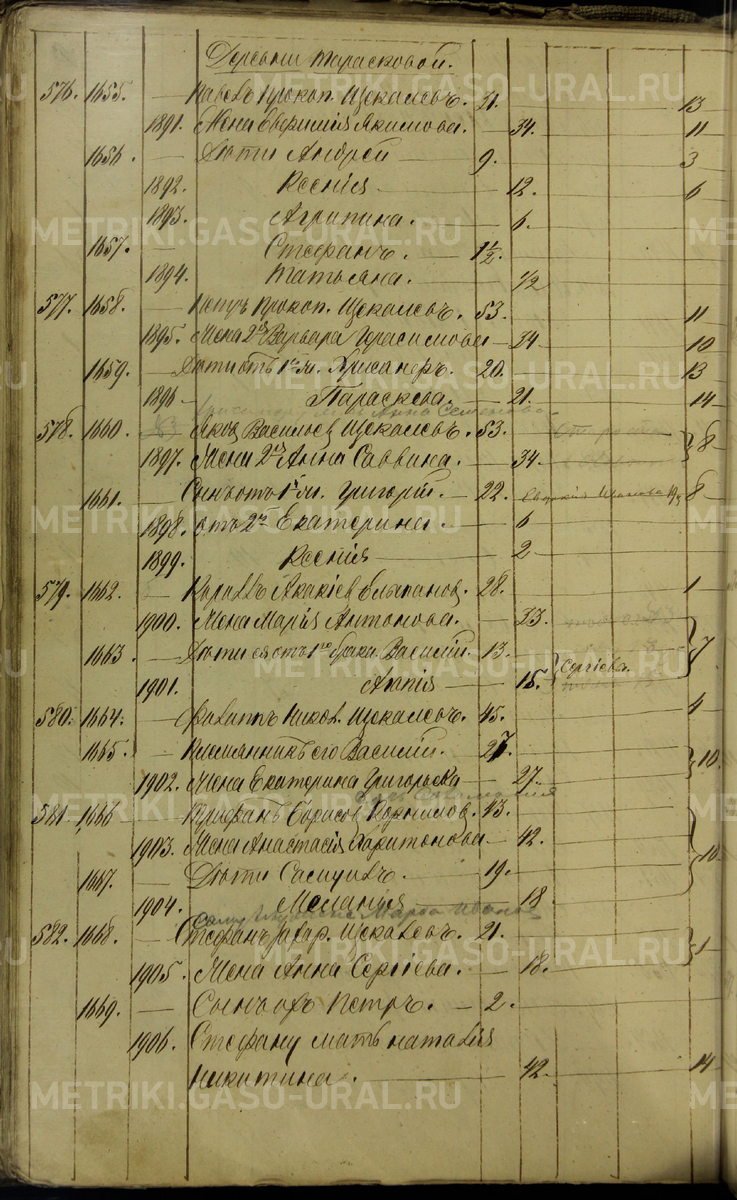 Деревни Тарасковой.
576. 1655. — Павелъ Прокоп. Щекалевъ. 31. 13
1891. Жена Евфимия Якимова. 34. 11
1656. — Дѣти Андрей — 9. 3
1892. Ксения 12. 6
1893. Агрипина. 6.
1657. — Стефанъ. 1½.
1894. Татьяна. 1/2
577. 1658. — Петръ Прокоп. Щекалевъ. 53. 11
1895. Жена 2я Варвара Герасимова — 34. 10
1659. — Дѣти отъ 1й ж. Хрисанфъ. 20. 13
1896. Параскева. — 21. 14
Анна Семенова
578. 1660. — Яковъ Васильев Щекалевъ. 53. 8
1897. Жена 2я Анна Саввина. — 34.
1661. — Сынъ отъ 1й ж. Григорій. — 22. 8
1898. отъ 2й Екатерина. — 6
1899. Ксения — 2
579. 1662. — Акакіев 28. 1
1900. Жена Марія Антонова. — 33. 7
1663. — Дѣти ея отъ 1го брака Василий. 13.
1901. Анна — 15. Сергѣевы
580. 1664. — Филиппъ Никол. Щекалевъ. 45. 4
1665. — Племянникъ его Василий. 27. 10.
1902. Жена Екатерина Григорьева — 27.
581. 1666. — Трифанъ Борисов Корнилов. 43. 10.
1903. Жена Анастасія Харитонова — 42.
1667. — Дѣти Самуилъ. — 19.
1904. Меланія — 18.
Марфа Иванова
582. 1668. — Стефанъ Захар. Щекалевъ. 21. 1
1905. Жена Анна Сергѣева. — 18.
1669. — Сынъ ихъ Петръ. — 2.
1906. Стефану мать Наталия
Никитина. — 42. 14
METRIKI.GASO-URAL.RU